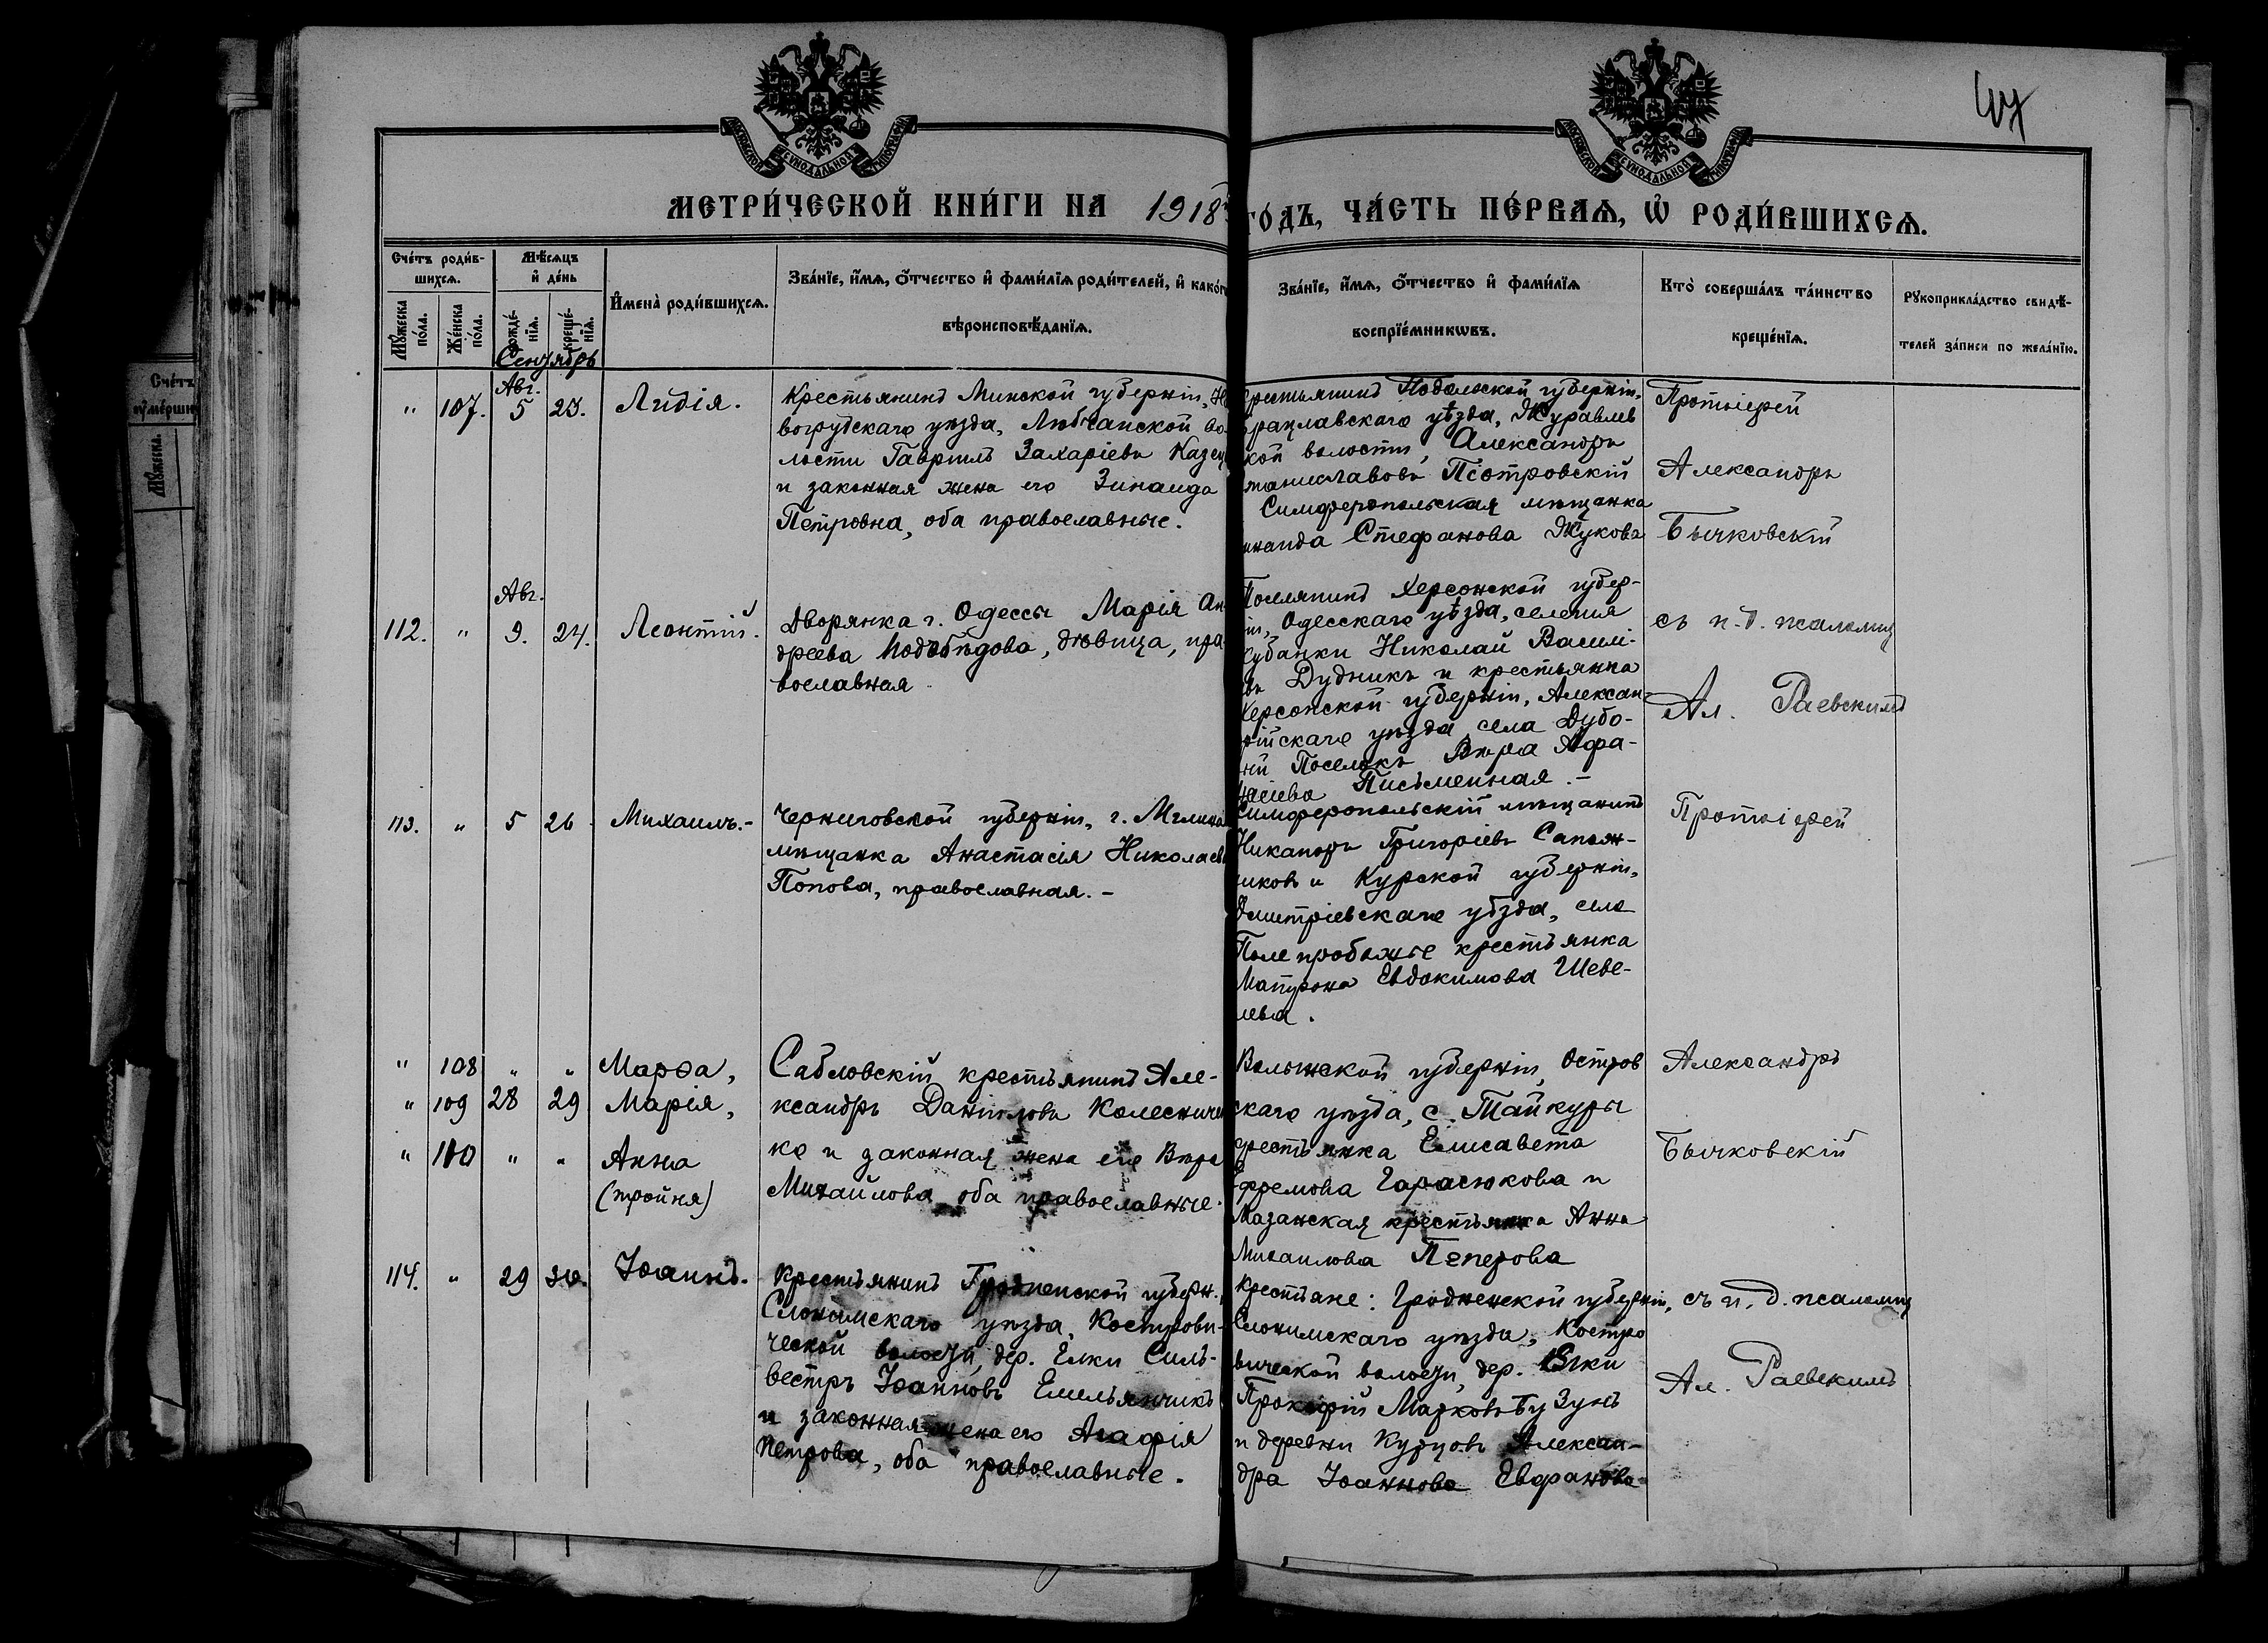 47
МОСКОВСКОЙ СѴНОДАЛЬНОЙ ТИПОГРАФІИ
МОСКОВСКОЙ СѴНОДАЛЬНОЙ ТИПОГРАФІИ
МЕТРИ́ЧЕСКОЙ КНИ́ГИ НА 1918 ГО́ДЪ, ЧА́СТЬ ПЕ́РВАѦ, Ѡ҆ РОДИ́ВШИХСѦ.
Сче́тъ роди́в-
шихсѧ.
Мꙋ́жеска по́ла.
Же́нска по́ла.
Мѣ́сѧцъ и҆ де́нь
рожде́-
нїѧ.
креще́-
нїѧ.
И҆мена̀ роди́вшихсѧ.
Зва́нїе, и҆́мѧ, ѻ҆́тчество и҆ фами́лїѧ роди́телей, и҆ како́г
вѣроисповѣ́данїѧ.
Зва́нїе, и҆́мѧ, ѻ҆́тчество и҆ фами́лїѧ
воспрїе́мникѡвъ.
Кто̀ соверша́лъ та́инство
креще́нїѧ.
Рꙋкоприкла́дство свидѣ́-
телей за́писи по жела́нїю.
Сентябрь
" 107. Авг. 5 23. Лидія.
Крестьянинъ Минской губерніи, Но
вогрудскаго уѣзда, Любчанской во-
лости Гавріилъ Захаріевъ Казец
и законная жена его Зинаида
Петровна, оба православные.
крестьянинъ Подольской губерніи,
Брацлавскаго уѣзда, Журавлев
кой волости, Александръ
таниславовъ Піотровскій
Симферопольская мѣщанка
инаида Стефанова Жукова
Протоіерей
Александръ
Бычковскій
112. " Авг. 9. 24. Леонтій.
Дворянка г. Одессы Марія Ан-
дреева дѣвица, пра
вославная
Поселянинъ Херсонской губер-
ніи, Одесскаго уѣзда, селенія
Кубанки Николай Васил-
въ Дудникъ и крестьянка
Херсонской губерніи, Алексан-
рійскаго уѣзда села Дубо-
вый Поселокъ Вѣра Афа-
насіева Письменная.-
съ и.д. псаломщ
Ал. Раевскимъ
113. " 5 26 Михаилъ.-
Черниговской губерніи, г. Мглина
мѣщанка Анастасія Николаев
Попова, православная.-
Симферопольскій мѣщанинъ
Никаноръ Григоріевъ Сапож-
никовъ и Курской губерніи,
Дмитріевскаго уѣзда, села
крестьянка
Матрона Евдокимова Шеве-
лева.
Протоіерей
" 108 " " Марѳа,
" 109 28 29 Марія,
" 110 " " Анна
(тройня)
Сабловскій крестьянинъ Але-
ксандръ Даніиловъ Колесничен
ко и законная жена его Вѣра
Михайлова оба православные.
Волынской губерніи, Остров
скаго уѣзда, с. Тайкуры
крестьянка Елисавета
Ефремова Гарасюкова и
Мазанская крестьянка Анна
Михаилова Пеперова
Александръ
Бычковскій
114. " 29 30. Іоаннъ.
Крестьянинъ Гродненской губерн.
Слонимскаго уѣзда, Костров-
ческой волости, дер. Елки Силь-
вестръ Іоанновъ Емельянчикъ
и законная жена его Агафія
Петрова, оба православные.
Крестьяне: Гродненской губерніи,
Слонимскаго уѣзда, Костро
вической волости, дер. Елки
Прокофій Марковъ Бузунъ
и деревни Курцовъ Алексан-
дра Іоаннова Евфанова
съ и. д. псаломщ
Ал. Раевскимъ
Сче́тъ
ᲂу҆ме́рши
Мꙋ́жеска